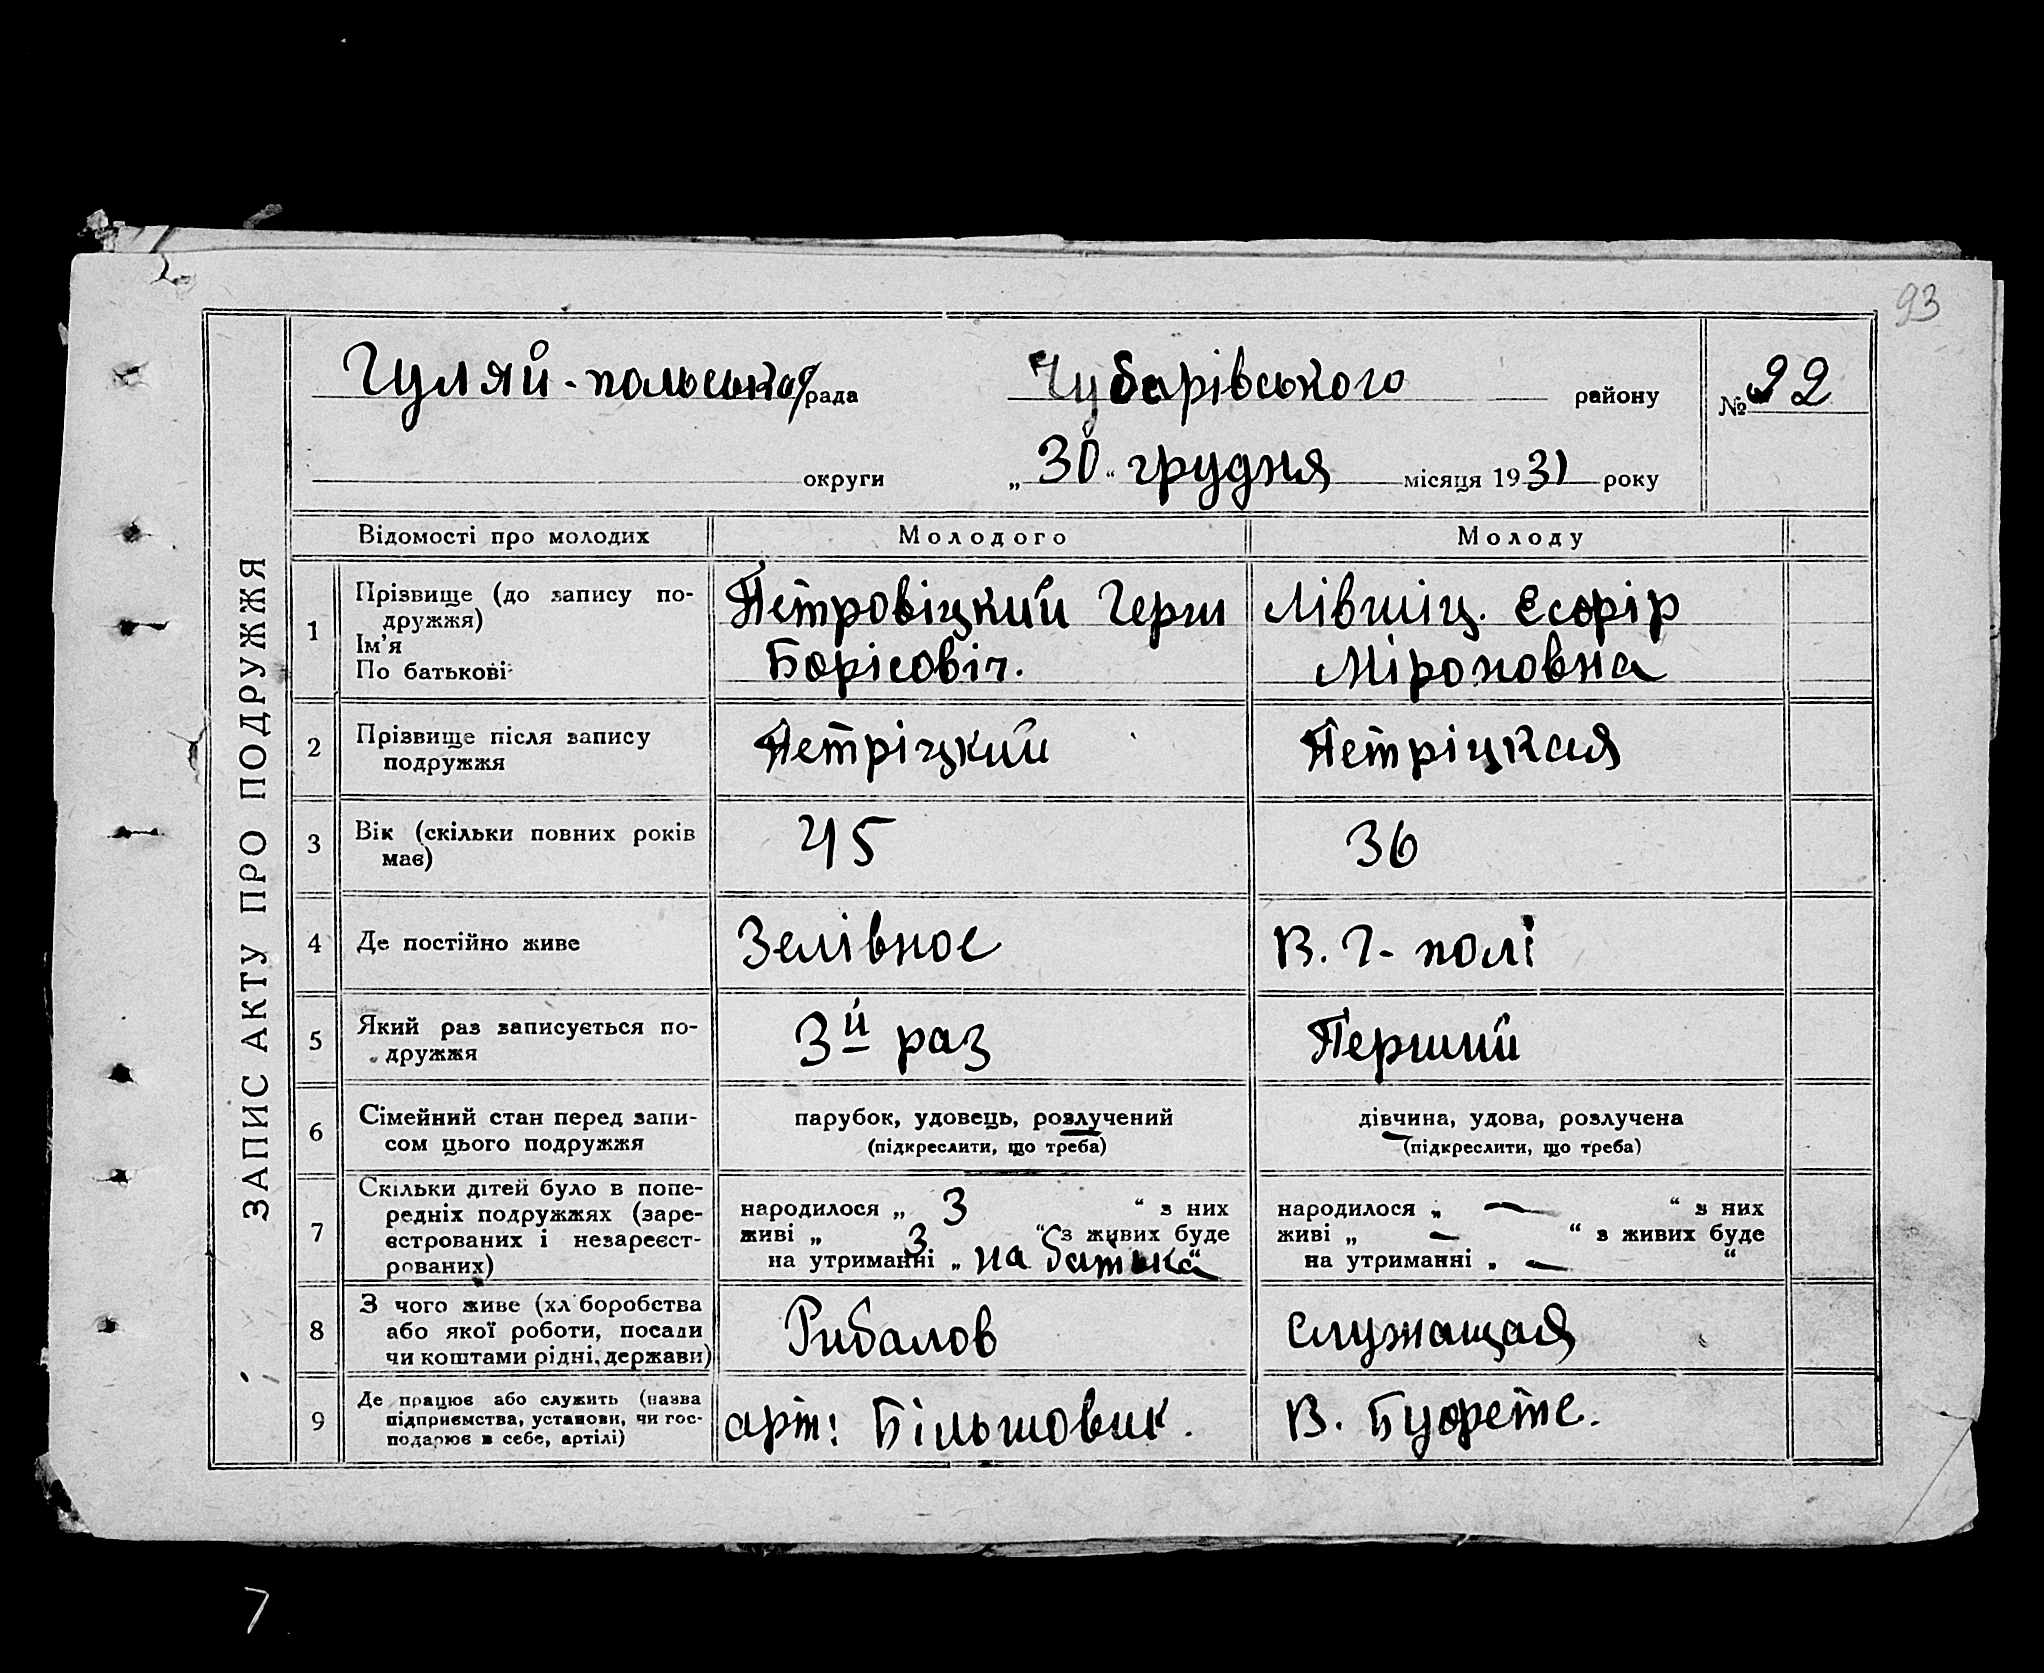 93
ЗАПИС АКТУ ПРО ПОДРУЖЖЯ
Гуляй-польська рада Чубарівського району № 22
округи „30“ грудня місяця 1931 року
Відомості про молодих Молодого Молоду
1 Прізвище (до запису по-
дружжя)
Ім'я
По батькові
Петровіцкий Герш
Борісовіч.
Лівшіц. Єсфір
Міроновна
2 Прізвище після запису
подружжя
Петріцкий
Петріцкая
3 Вік (скільки повних років
має)
45
36
4 Де постійно живе
Зелівное
В. Г-полі
5 Який раз записується по-
дружжя
3й раз
Перший
6 Сімейний стан перед запи-
сом цього подружжя
парубок, удовець, розлучений
(підкреслити, що треба)
дівчина, удова, розлучена
(підкреслити, що треба)
7 Скільки дітей було в попе-
редніх подружжях (заре-
єстрованих і незареєст-
рованих)
народилося „ 3 “ з них
живі „ 3 “ з живих буде
на утриманні „ на батька “
народилося „ — “ з них
живі „ — “ з живих буде
на утриманні „ — “
8 З чого живе (хл боробства
або якої роботи, посади
чи коштами рідні, держави)
Рибалов
Служащая
9 Де працює або служить (назва
підприємства, установи, чи гос-
подарює в себе, артілі)
арт: Більшовик.
В. Буфете.
7